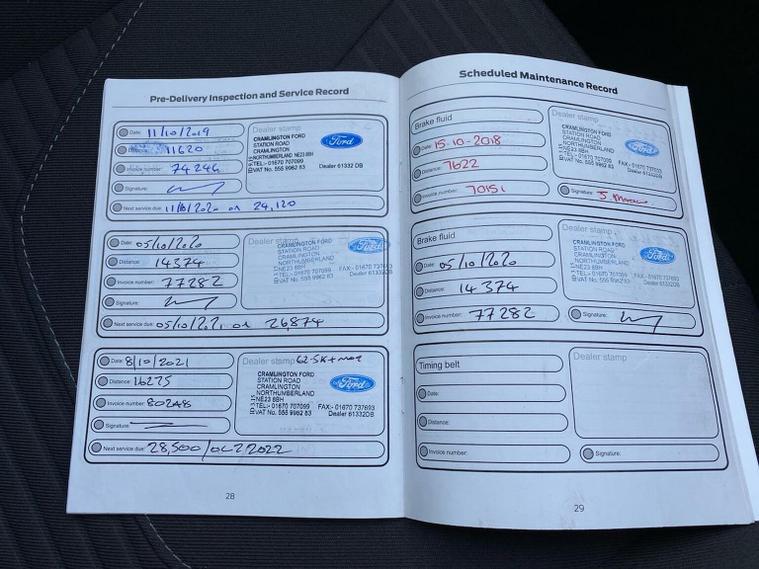 Pre-Delivery Inspection and Service Record
Date: 11/10/2019
Distance: 11620
Invoice number: 74246
Signature:
Next service due: 11/10/2020 or 24,120
Dealer stamp
CRAMLINGTON FORD
STATION ROAD
CRAMLINGTON
NORTHUMBERLAND NE23 8BH
TEL:- 01670 707099
VAT No. 555 9962 83 Dealer 61332 DB
Ford
Date: 05/10/2020
Distance: 14374
Invoice number: 77282
Signature:
Next service due: 05/10/2021 or 26,874
Dealer stamp
CRAMLINGTON FORD
STATION ROAD
CRAMLINGTON
NORTHUMBERLAND
NE23 8BH
TEL:- 01670 707099 FAX:- 01670 737693
VAT No. 555 9962 83 Dealer 61332DB
Ford
Date: 8/10/2021
Distance: 16275
Invoice number: 80248
Signature:
Next service due: 28,500/OCT 2022
Dealer stamp 62.5K + MOT
CRAMLINGTON FORD
STATION ROAD
CRAMLINGTON
NORTHUMBERLAND
NE23 8BH
TEL:- 01670 707099 FAX:- 01670 737693
VAT No. 555 9962 83 Dealer 61332DB
Ford
28
Scheduled Maintenance Record
Brake fluid
Date: 15-10-2018
Distance: 7622
Invoice number: 70151
Dealer stamp
CRAMLINGTON FORD
STATION ROAD
CRAMLINGTON
NORTHUMBERLAND
NE23 8BH
TEL:- 01670 707099 FAX:- 01670 737693
VAT No. 555 9962 83 Dealer 61332DB
Ford
Signature: J.
Brake fluid
Date: 05/10/2020
Distance: 14374
Invoice number: 77282
Dealer stamp
CRAMLINGTON FORD
STATION ROAD
CRAMLINGTON
NORTHUMBERLAND
NE23 8BH
TEL:- 01670 707099 FAX:- 01670 737693
VAT No. 555 9962 83 Dealer 61332DB
Ford
Signature:
Timing belt
Date:
Distance:
Invoice number:
Dealer stamp
Signature:
29